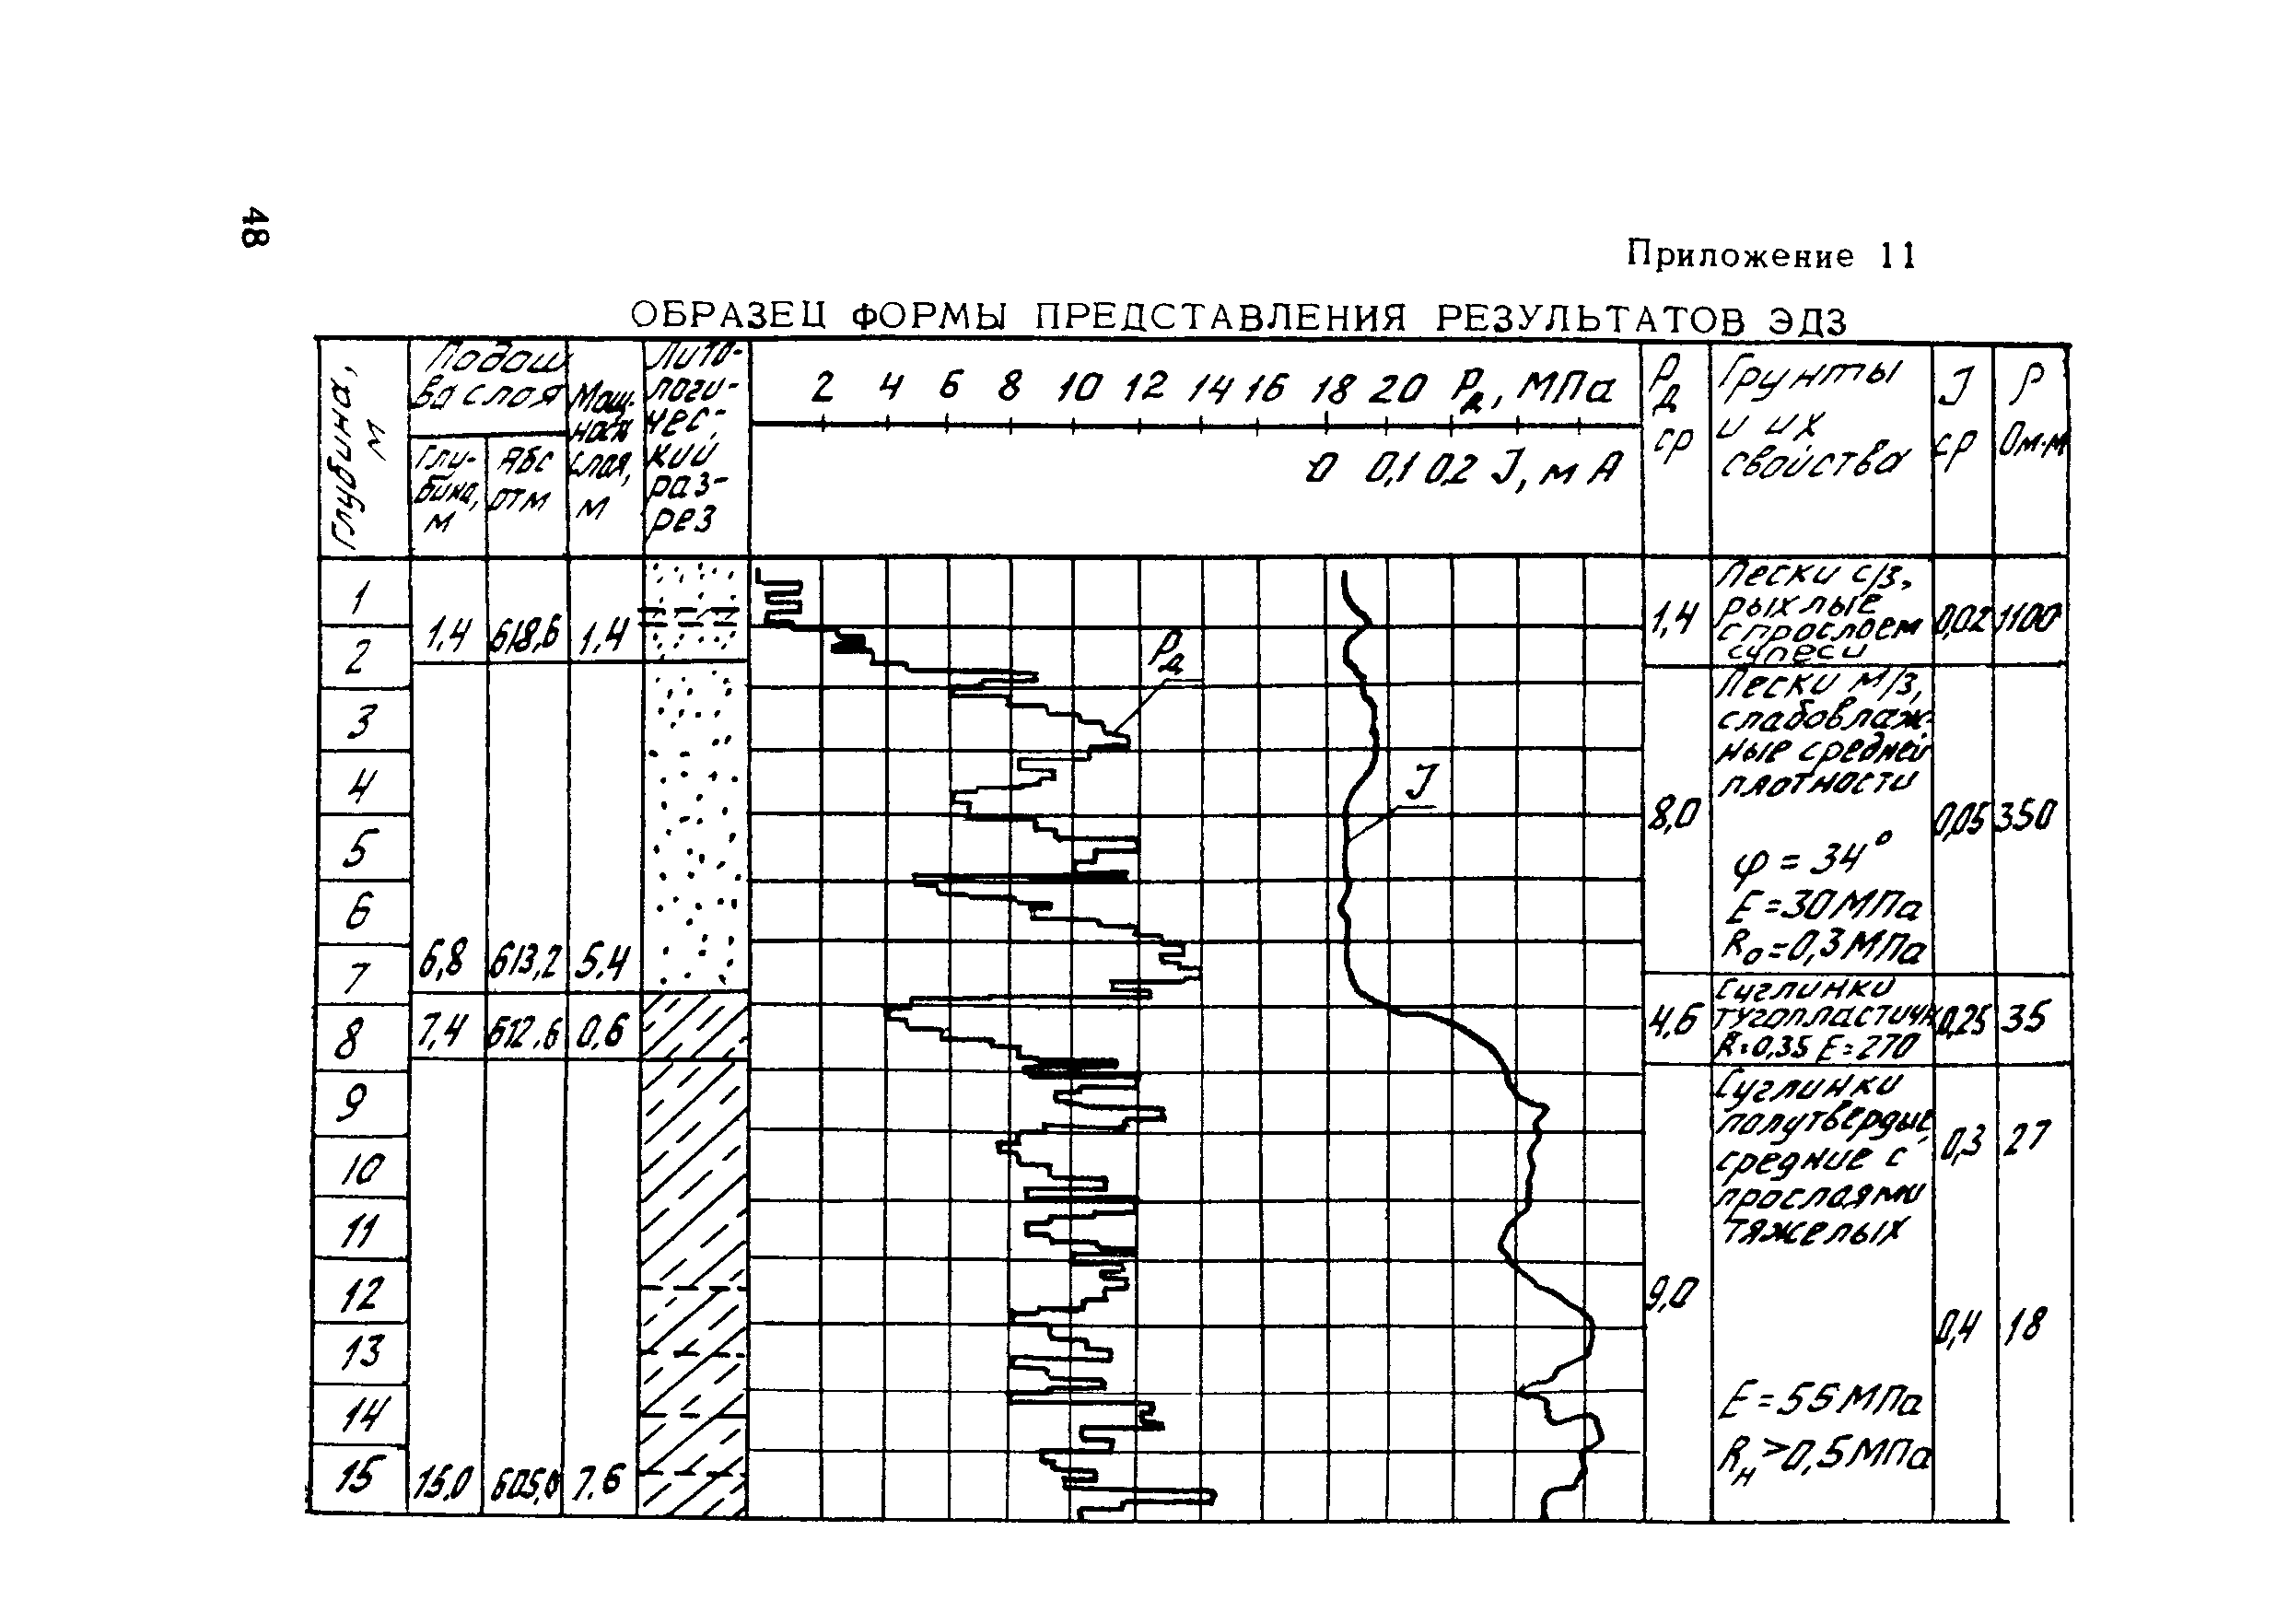 48
Приложение 11
ОБРАЗЕЦ ФОРМЫ ПРЕДСТАВЛЕНИЯ РЕЗУЛЬТАТОВ ЭДЗ
Глубина, м
Подош
ва слоя
Глу-
бина,
м
Абс
отм
Мощ-
ность
слоя,
м
Лито-
логи-
чес-
кий
раз-
рез
2 4 6 8 10 12 14 16 18 20 Рд, МПа
0 0,1 0,2 J, мА
Рд
ср
Грунты
и их
свойства
J
ср
ρ
Ом·м
1
2
3
4
5
6
7
8
9
10
11
12
13
14
15
1,4 618,6 1,4
6,8 613,2 5,4
7,4 612,6 0,6
15,0 605,0 7,6
Рд
J
1,4
Пески с/з,
рыхлые
с прослоем
супеси
0,02 1100
8,0
Пески м/з,
слабовлаж-
ные средней
плотности
φ = 34°
Е = 30 МПа
Rо = 0,3 МПа
0,05 350
4,6
Суглинки
тугопластичн
R = 0,35 Е = 270
0,25 35
9,0
Суглинки
полутвердые,
средние с
прослоями
тяжелых
Е = 55 МПа
Rн > 0,5 МПа
0,3 27
0,4 18